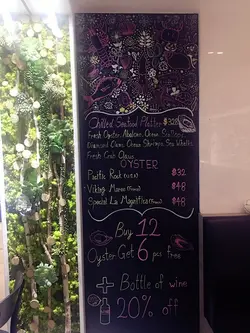 Chilled Seafood Platter $328
Fresh Oyster, Abalone, Ocean
Diamond Clams, Ocean Shrimps, Sea Whelks
Fresh Crab Claws
OYSTER
Pacific Rock (USA) $32
Viking Marea $48
Special La Magallica $48
Buy 12
Oyster Get 6 pcs free
+ Bottle of wine
20% off